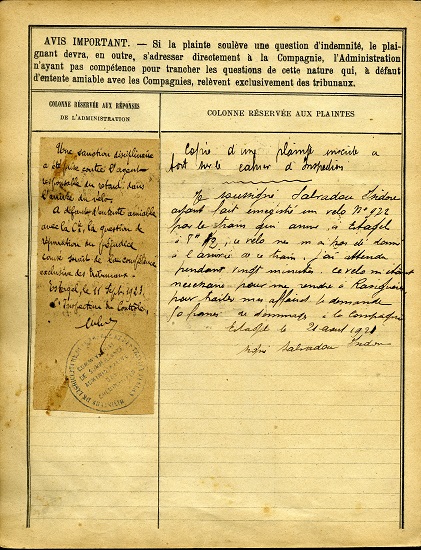 AVIS IMPORTANT. — Si la plainte soulève une question d'indemnité, le plai-
gnant devra, en outre, s'adresser directement à la Compagnie, l'Administration
n'ayant pas compétence pour trancher les questions de cette nature qui, à défaut
d'entente amiable avec les Compagnies, relèvent exclusivement des tribunaux.
COLONNE RÉSERVÉE AUX RÉPONSES
DE L'ADMINISTRATION
Une sanction disciplinaire
a été prise contre l'agent
responsable du retard dans
l'arrivée du vélo.
A défaut d'entente amiable
avec la Cie, la question de
réparation du préjudice
causé serait de la compétence
exclusive des tribunaux.
Estagel, le 11 Sept 1921.
L'Inspecteur du Contrôle,
COLONNE RÉSERVÉE AUX PLAINTES
Copie d'une plainte inscrite a
tort sur le cahier d'Inspection
Je soussigné Salvadou Isidore
ayant fait enregistré un vélo N° 922
par le train qui arrive à Estagel
à 7h 12, ce vélo ne m'a pas été donné
à l'arrivée de ce train. j'ai attendu
pendant vingt minutes. ce vélo m'étant
nécessaire pour me rendre à
pour traiter mes affaires. Je demande
francs de dommages à la Compagnie
Estagel le 21 aout 1921
signé Salvadou Isidore